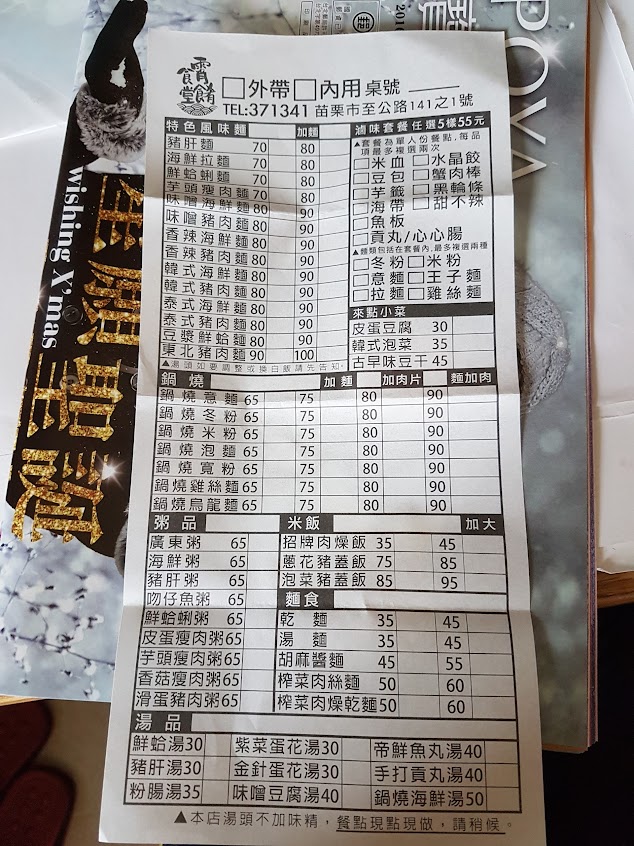 宵餚食堂
□外帶□內用 桌號
TEL:371341 苗栗市至公路141之1號
特色風味麵 加麵
豬肝麵 70 80
海鮮拉麵 70 80
鮮蛤蜊麵 70 80
芋頭瘦肉麵 70 80
味噌海鮮麵 80 90
味噌豬肉麵 80 90
香辣海鮮麵 80 90
香辣豬肉麵 80 90
韓式海鮮麵 80 90
韓式豬肉麵 80 90
泰式海鮮麵 80 90
泰式豬肉麵 80 90
豆漿鮮蛤麵 80 90
東北豬肉麵 90 100
▲湯頭如要調整或換白飯請先告知。
滷味套餐任選5樣55元
▲套餐為單人份餐點,每品
項最多複選兩次
□米血 □水晶餃
□豆包 □蟹肉棒
□芋籤 □黑輪條
□海帶 □甜不辣
□魚板
□貢丸/心心腸
▲麵類包括在套餐內,最多複選兩種
□冬粉 □米粉
□意麵 □王子麵
□拉麵 □雞絲麵
來點小菜
皮蛋豆腐 30
韓式泡菜 35
古早味豆干 45
鍋燒 加麵 加肉片 麵加肉
鍋燒意麵 65 75 80 90
鍋燒冬粉 65 75 80 90
鍋燒米粉 65 75 80 90
鍋燒泡麵 65 75 80 90
鍋燒寬粉 65 75 80 90
鍋燒雞絲麵 65 75 80 90
鍋燒烏龍麵 65 75 80 90
粥品
廣東粥 65
海鮮粥 65
豬肝粥 65
吻仔魚粥 65
鮮蛤蜊粥 65
皮蛋瘦肉粥 65
芋頭瘦肉粥 65
香菇瘦肉粥 65
滑蛋豬肉粥 65
米飯 加大
招牌肉燥飯 35 45
蔥花豬蓋飯 75 85
泡菜豬蓋飯 85 95
麵食
乾麵 35 45
湯麵 35 45
胡麻醬麵 45 55
榨菜肉絲麵 50 60
榨菜肉燥乾麵 50 60
湯品
鮮蛤湯30 紫菜蛋花湯30 帝鮮魚丸湯40
豬肝湯30 金針蛋花湯30 手打貢丸湯40
粉腸湯35 味噌豆腐湯40 鍋燒海鮮湯50
▲本店湯頭不加味精，餐點現點現做，請稍候。
POYA
Wishing X'mas
聖誕